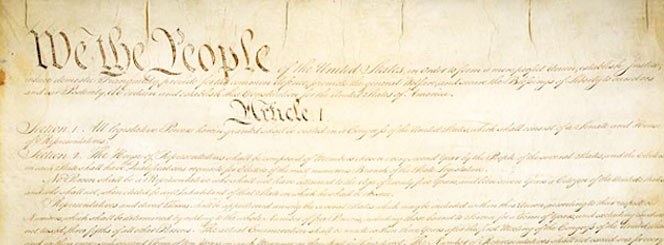 We the People of the United States, in Order to form a more perfect Union, establish Justice,
insure domestic Tranquility, provide for the common defence, promote the general Welfare, and secure the Blessings of Liberty to ourselves
and our Posterity, do ordain and establish this Constitution for the United States of America.
Article I.
Section 1. All legislative Powers herein granted shall be vested in a Congress of the United States, which shall consist of a Senate and House
of Representatives.
Section 2. The House of Representatives shall be composed of Members chosen every second Year by the People of the several States, and the Electors
in each State shall have Qualifications requisite for Electors of the most numerous Branch of the State Legislature.
No Person shall be a Representative who shall not have attained to the Age of twenty five Years, and been seven Years a Citizen of the United States,
and who shall not, when elected, be an Inhabitant of that State in which he shall be chosen.
Representatives and direct Taxes shall be apportioned among the several States which may be included within this Union, according to their respective
Numbers, which shall be determined by adding to the whole Number of free Persons, including those bound to Service for a Term of Years, and excluding Indians
not taxed, three fifths of all other Persons. The actual Enumeration shall be made within three Years after the first Meeting of the Congress of the United States,